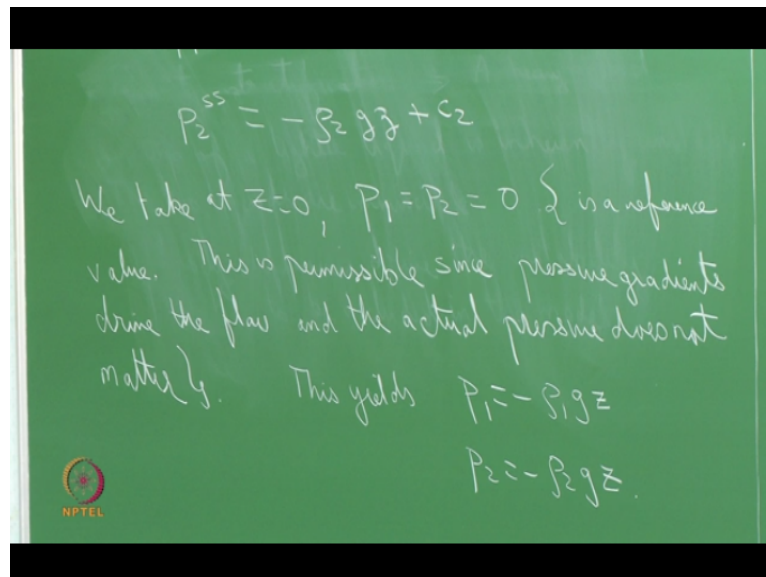 P₂ˢˢ = - ρ₂ g z + c₂
We take at z=0, P₁ = P₂ = 0 { is a reference
value. This is permissible since pressure gradients
drive the flow and the actual pressure does not
matter }. This yields P₁ = - ρ₁ g z
P₂ = - ρ₂ g z.
NPTEL